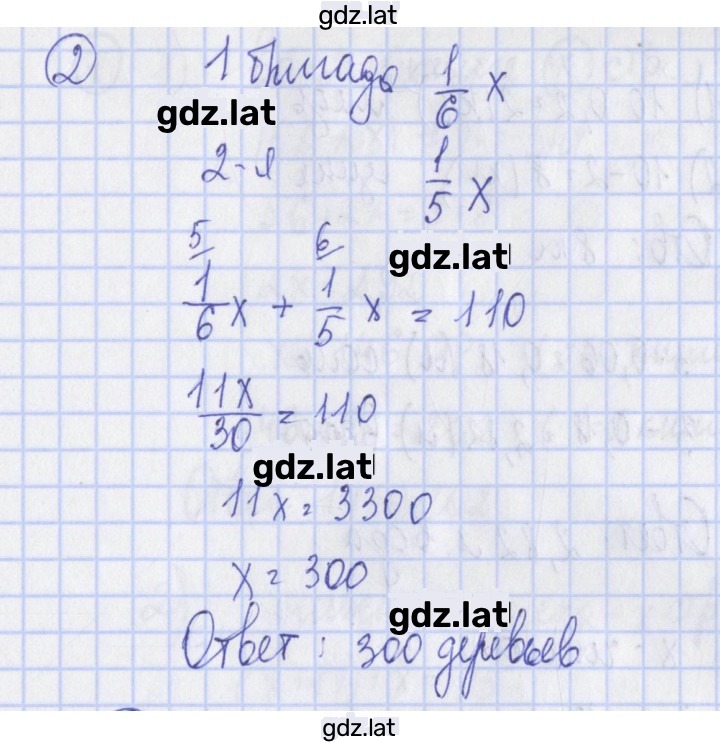 gdz.lat
② 1 бригада 1/6 x
gdz.lat
2-я 1/5 x
5 6
gdz.lat
1/6 x + 1/5 x = 110
11x/30 = 110
gdz.lat
11x = 3300
x = 300
gdz.lat
Ответ: 300 деревьев
gdz.lat